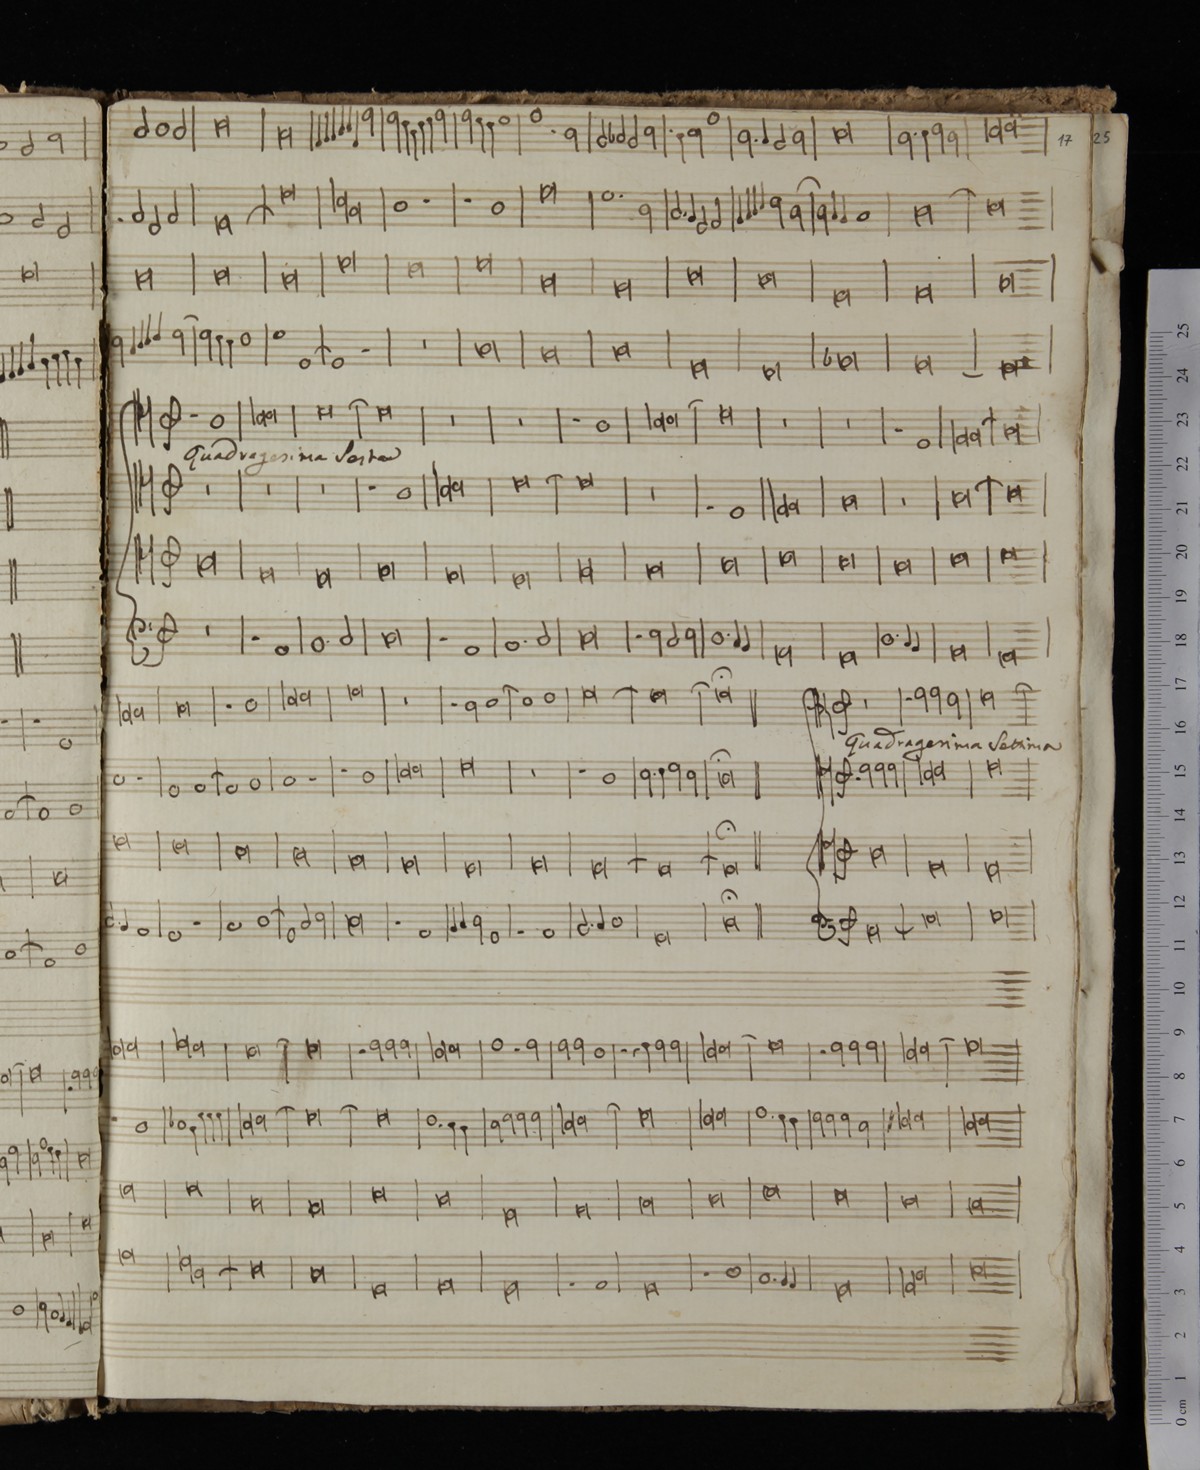 17
25
Quadragesima Sesta
Quadragesima Settima
25
24
23
22
21
20
19
18
17
16
15
14
13
12
11
10
9
8
7
6
5
4
3
2
1
0 cm